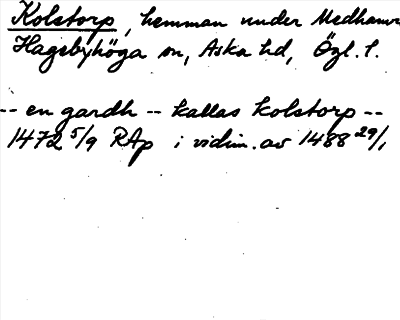 Kolstorp, hemman under Medhamra
Hagebyhöga sn, Aska hd, Özl. l.
-- en gardh -- kallas kolstorp --
1472 5/9 RAp i vidim. av 1488 29/1